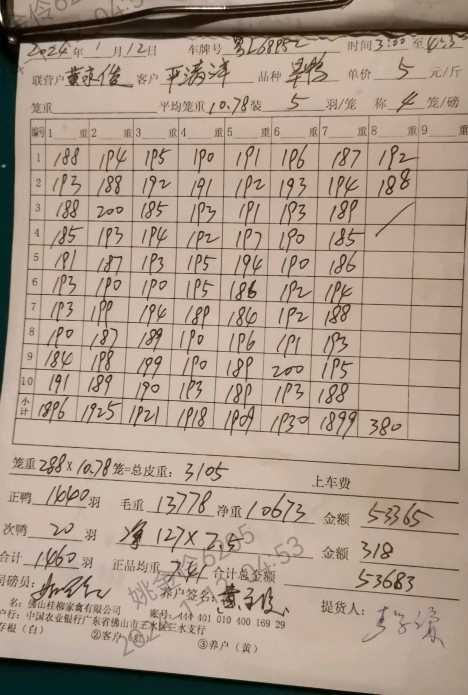 2024年1月12日 车牌号 粤L68952 时间3:00至4:53
联营户 黄 俊 客户 平清洋 品种 单价 5 元/斤
笼重 平均笼重10.78 装 5 羽/笼 称 4 笼/磅
编号 1 重 2 重 3 重 4 重 5 重 6 重 7 重 8 重 9 重
1 188 194 195 190 191 196 187 192
2 193 188 192 191 192 193 194 188
3 188 200 185 193 191 193 189
4 185 193 194 192 197 190 185
5 191 187 193 195 194 190 186
6 193 190 190 195 186 192 194
7 193 199 194 189 184 192 188
8 190 187 189 190 196 191 193
9 184 198 199 190 189 200 195
10 191 189 190 193 189 193 188
小计 1896 1925 1921 1918 1909 1930 1899 380
笼重 288×10.78 笼=总皮重: 3105 上车费
正鸭 1440 羽 毛重 13778 净重 10673 金额 53365
次鸭 20 羽 净 127×2.5 金额 318
合计 1460 羽 正品均重 7.41 合计总金额 53683
司磅员: 养户签名: 黄 俊 提货人:
名: 佛山桂柳家禽有限公司 账号: 444 401 010 400 169 29
户行: 中国农业银行广东省佛山市三水区三水支行
存根（白） ②客户 ③养户（黄）